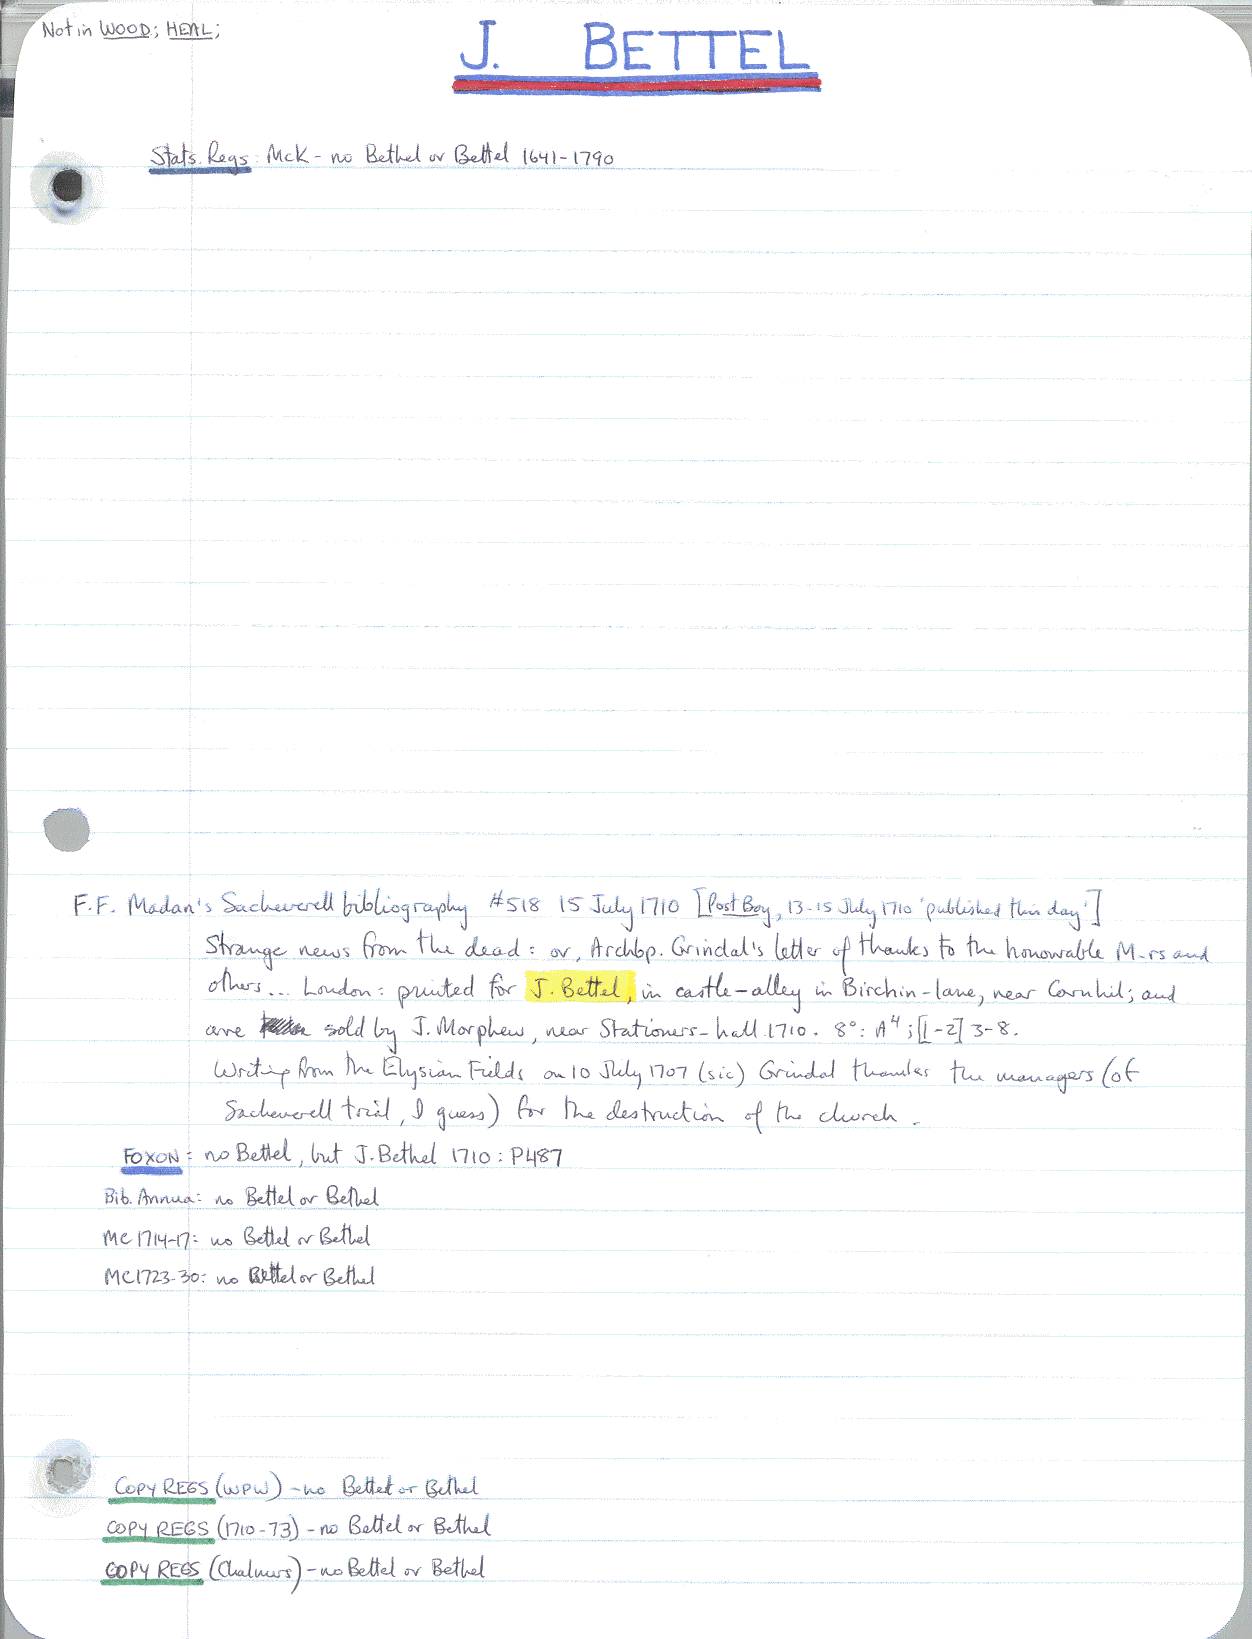 Not in WOOD; HEAL;
J. BETTEL
Stats. Regs: McK - no Bethel or Bettel 1641-1790
F.F. Madan's Sacheverell bibliography #518 15 July 1710 [Post Boy, 13-15 July 1710 'published this day']
Strange news from the dead: or, Archbp. Grindal's letter of thanks to the honourable M-rs and
others... London: printed for J. Bettel, in castle-alley in Birchin-lane, near Cornhil; and
are sold by J. Morphew, near Stationers-hall. 1710. 8°: A⁴; [1-2] 3-8.
Writing from the Elysian Fields on 10 July 1707 (sic) Grindal thanks the managers (of
Sacheverell trial, I guess) for the destruction of the church.
FOXON: no Bettel, but J. Bethel 1710: P487
Bib. Annua: no Bettel or Bethel
MC 1714-17: no Bettel or Bethel
MC1723-30: no Bettel or Bethel
COPY REGS (WPW) - no Bettel or Bethel
COPY REGS (1710-73) - no Bettel or Bethel
COPY REGS (Chalmers) - no Bettel or Bethel